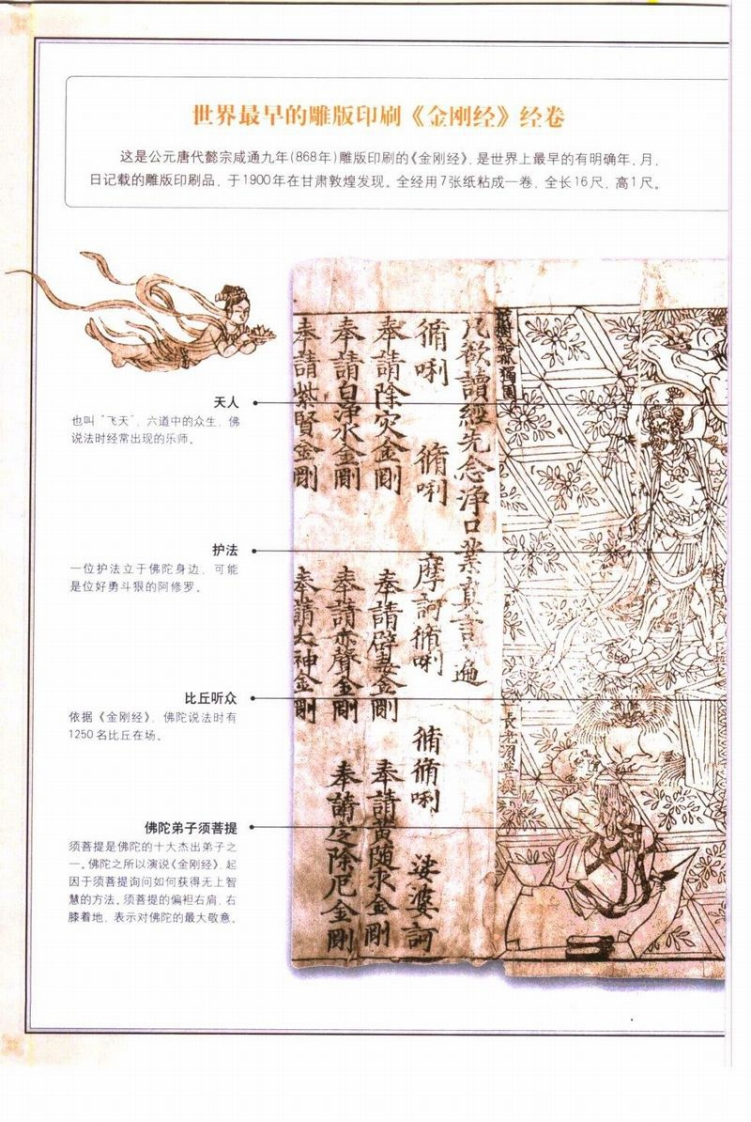 世界最早的雕版印刷《金刚经》经卷
这是公元唐代懿宗咸通九年(868年)雕版印刷的《金刚经》,是世界上最早的有明确年、月、
日记载的雕版印刷品,于1900年在甘肃敦煌发现。全经用7张纸粘成一卷,全长16尺,高1尺。
天人
也叫“飞天”,六道中的众生,佛
说法时经常出现的乐师。
护法
一位护法立于佛陀身边,可能
是位好勇斗狠的阿修罗。
比丘听众
依据《金刚经》,佛陀说法时有
1250名比丘在场。
佛陀弟子须菩提
须菩提是佛陀的十大杰出弟子之
一。佛陀之所以演说《金刚经》,起
因于须菩提询问如何获得无上智
慧的方法。须菩提的偏袒右肩,右
膝着地,表示对佛陀的最大敬意。
凡欲讀經先念淨口業真言一遍
脩唎 脩唎 摩訶脩唎 脩脩唎 娑婆訶
奉請除灾金剛 奉請辟毒金剛 奉請黃随求金剛
奉請白淨水金剛 奉請赤聲金剛 奉請定除厄金剛
奉請紫賢金剛 奉請大神金剛
長老須菩提